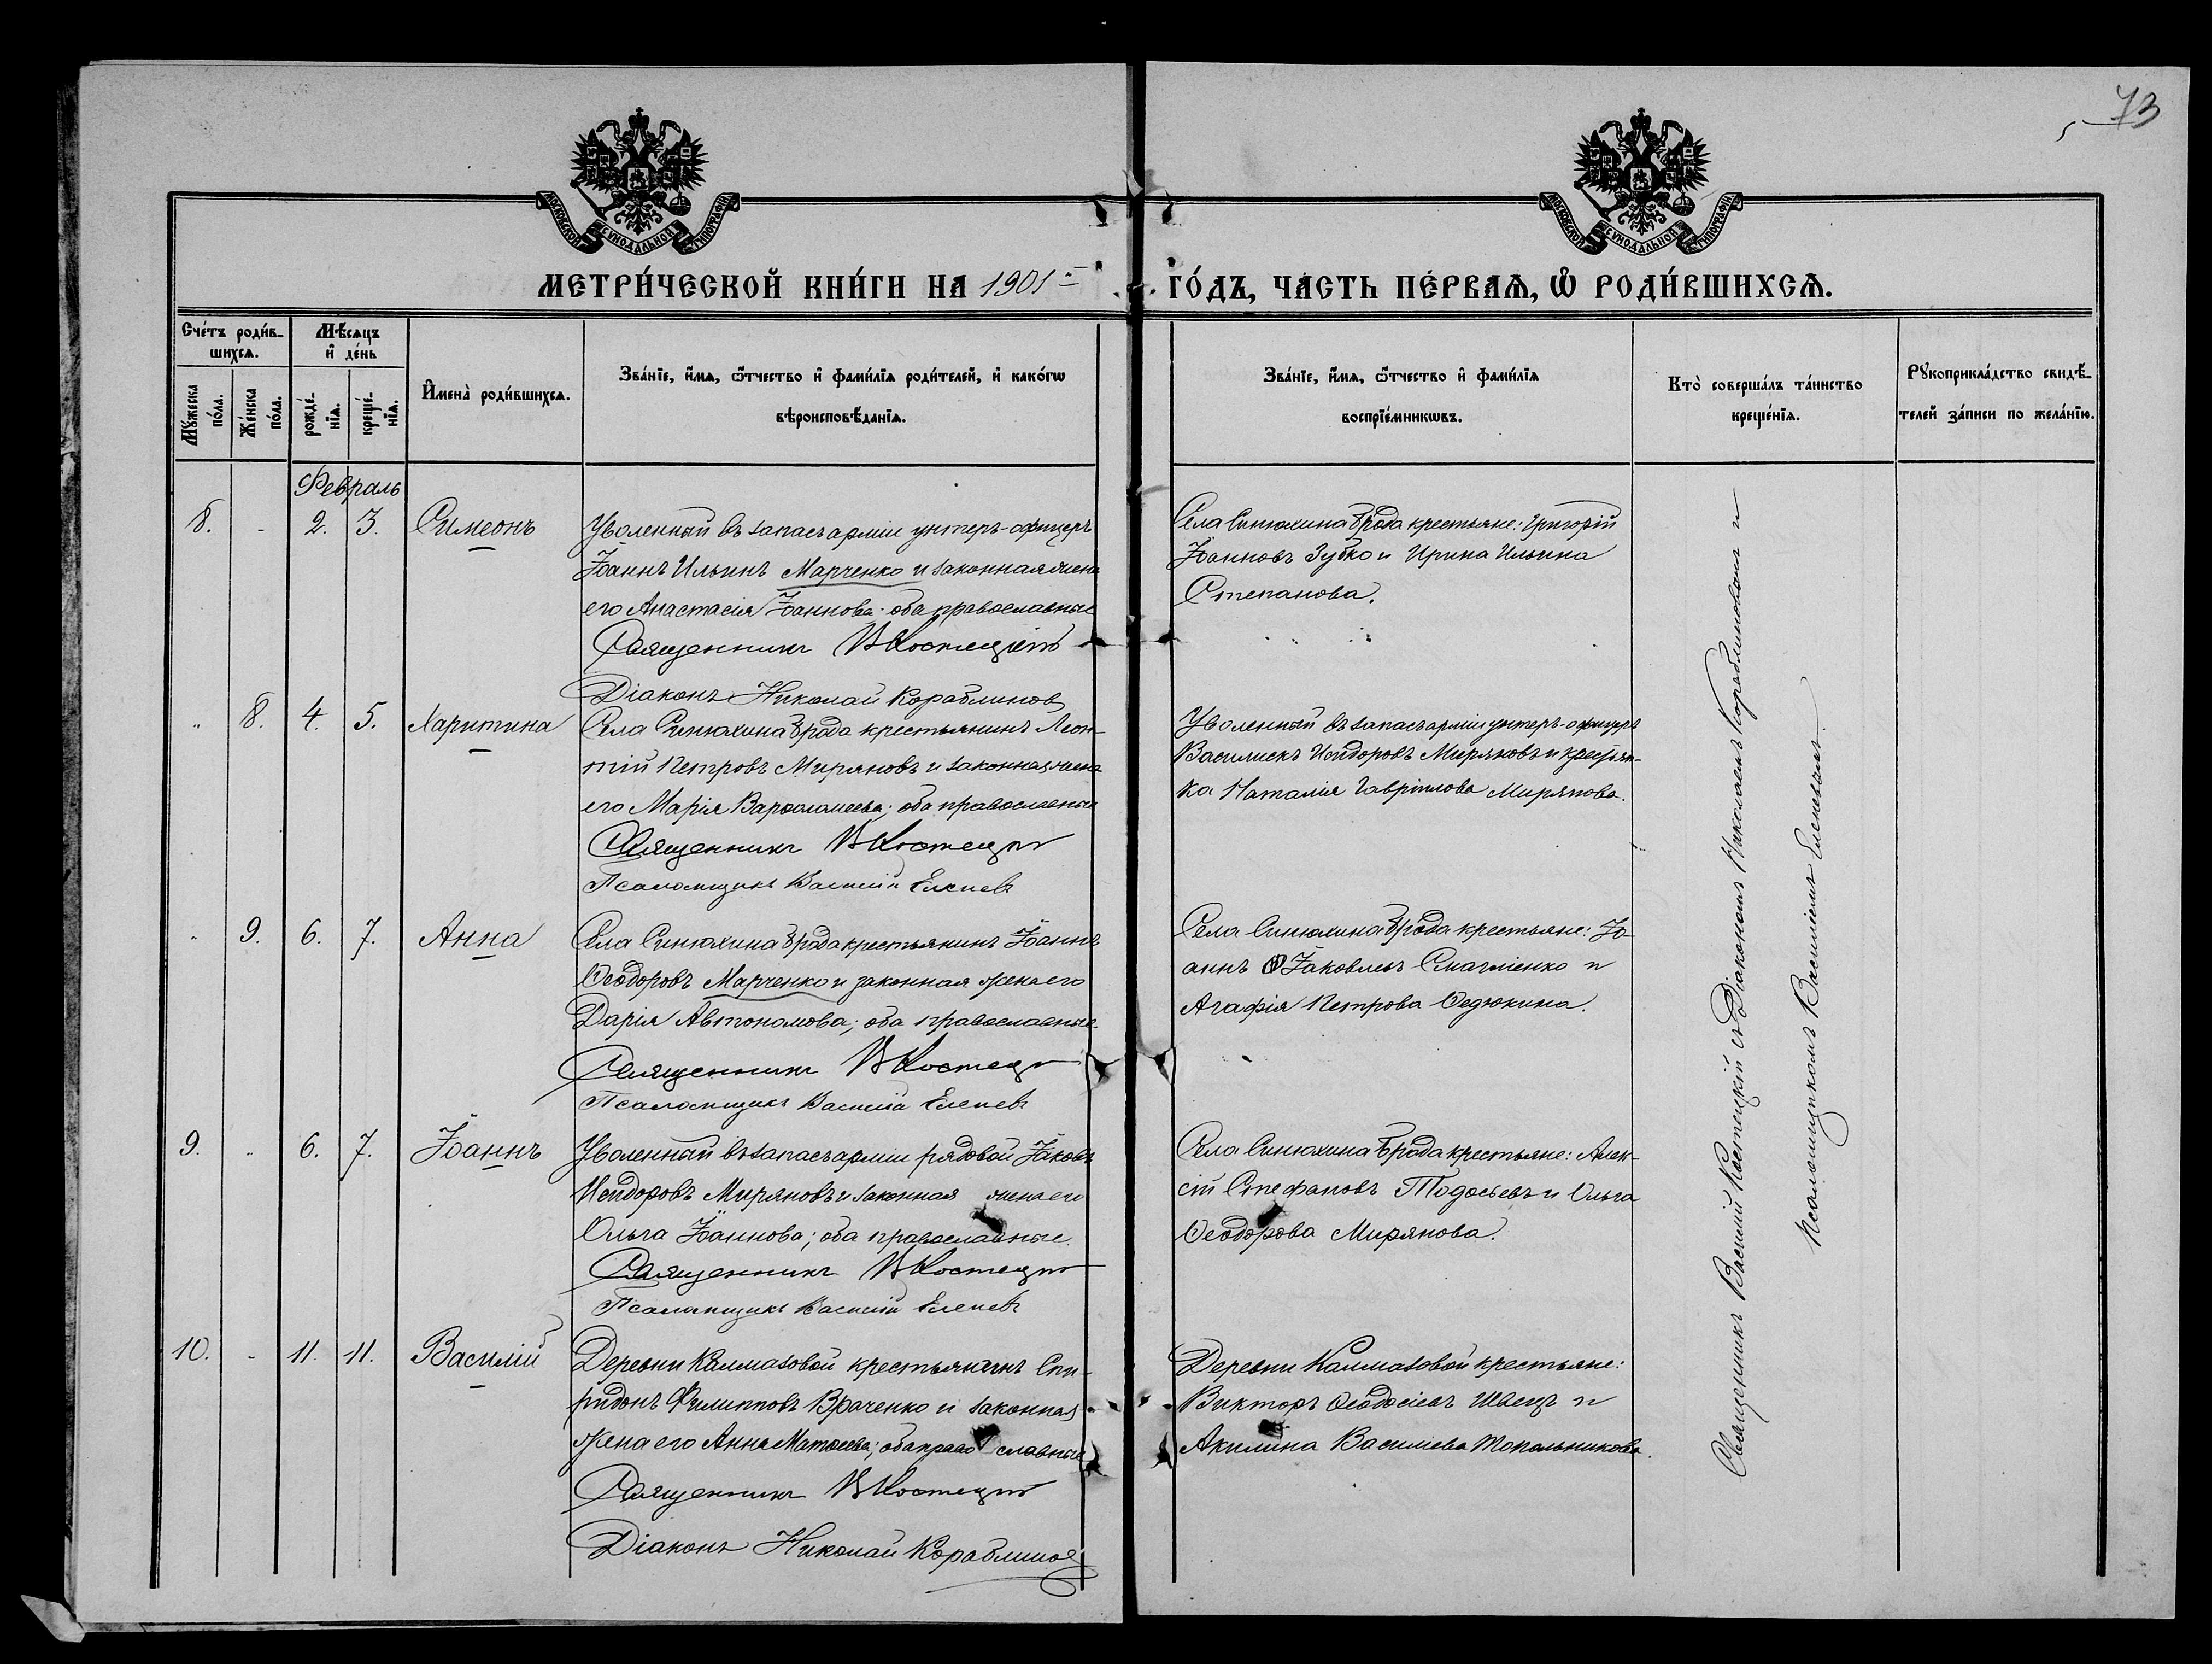 73
МОСКОВСКОЙ СѴНОДАЛЬНОЙ ТИПОГРАФІИ
МОСКОВСКОЙ СѴНОДАЛЬНОЙ ТИПОГРАФІИ
МЕТРИ́ЧЕСКОЙ КНИ́ГИ НА 1901-й ГО́ДЪ, ЧА́СТЬ ПЕ́РВАѦ, Ѡ РОДИ́ВШИХСѦ.
Сче́тъ роди́в-
шихсѧ.
Мꙋ́жеска по́ла.
Же́нска по́ла.
Мѣ́сѧцъ
и҆ де́нь
рожде́-
нїѧ.
креще́-
нїѧ.
И҆мена̀ роди́вшихсѧ.
Зва́нїе, и҆́мѧ, ѻ҆́тчество и҆ фами́лїѧ роди́телей, и҆ како́гѡ
вѣроисповѣ́данїѧ.
Зва́нїе, и҆́мѧ, ѻ҆́тчество и҆ фами́лїѧ
воспрїе́мникѡвъ.
Кто̀ соверша́лъ та́инство
креще́нїѧ.
Рꙋкоприкла́дство свидѣ́-
телей за́писи по жела́нїю.
Февраль
8. - 2. 3. Симеонъ
Уволенный въ запасъ арміи унтеръ-офицеръ
Іоаннъ Ильинъ Марченко и законная жена
его Анастасія Іоаннова; оба православные
Священникъ В Костецкій
Діаконъ Николай Кораблиновъ
Села Синюхина Брода крестьяне: Григорій
Іоанновъ Зубко и Ирина Ильина
Степанова.
" 8. 4. 5. Харитина
Села Синюхина Брода крестьянинъ Леон-
тій Петровъ Миряновъ и законная жена
его Марія Варѳоломеева; оба православные
Священникъ В Костецкій
Псаломщикъ Василій Елепевъ
Уволенный въ запасъ арміи унтеръ-офицеръ
Василискъ Исидоровъ Миряновъ и крестьян-
ка Наталія Гавріилова Мирянова.
" 9. 6. 7. Анна
Села Синюхина Брода крестьянинъ Іоаннъ
Ѳеодоровъ Марченко и законная жена его
Дарія Автономова; оба православные.
Священникъ В Костецкій
Псаломщикъ Василій Елепевъ
Села Синюхина Брода крестьяне: Іо-
аннъ Іаковлевъ и
Агафія Петрова Ѳедюкина.
9. " 6. 7. Іоаннъ
Уволенный въ запасъ арміи рядовой Іаковъ
Исидоровъ Миряновъ и законная жена его
Ольга Іоаннова; оба православные.
Священникъ В Костецкій
Псаломщикъ Василій Елепевъ
Села Синюхина Брода крестьяне: Алек-
сій Стефановъ Тодосьевъ и Ольга
Ѳеодорова Мирянова.
10. - 11. 11. Василій
Деревни Калмазовой крестьянинъ Спи-
ридонъ Филипповъ Враченко и законная
жена его Анна Матѳеева; оба православные
Священникъ В Костецкій
Діаконъ Николай Кораблиновъ
Деревни Калмазовой крестьяне:
Викторъ Ѳеодосіевъ Швецъ и
Акилина Василіева Топольникова.
Священникъ Василій Костецкій съ Діакономъ Николаемъ Кораблиновымъ и
Псаломщикомъ Василіемъ Елеповымъ.